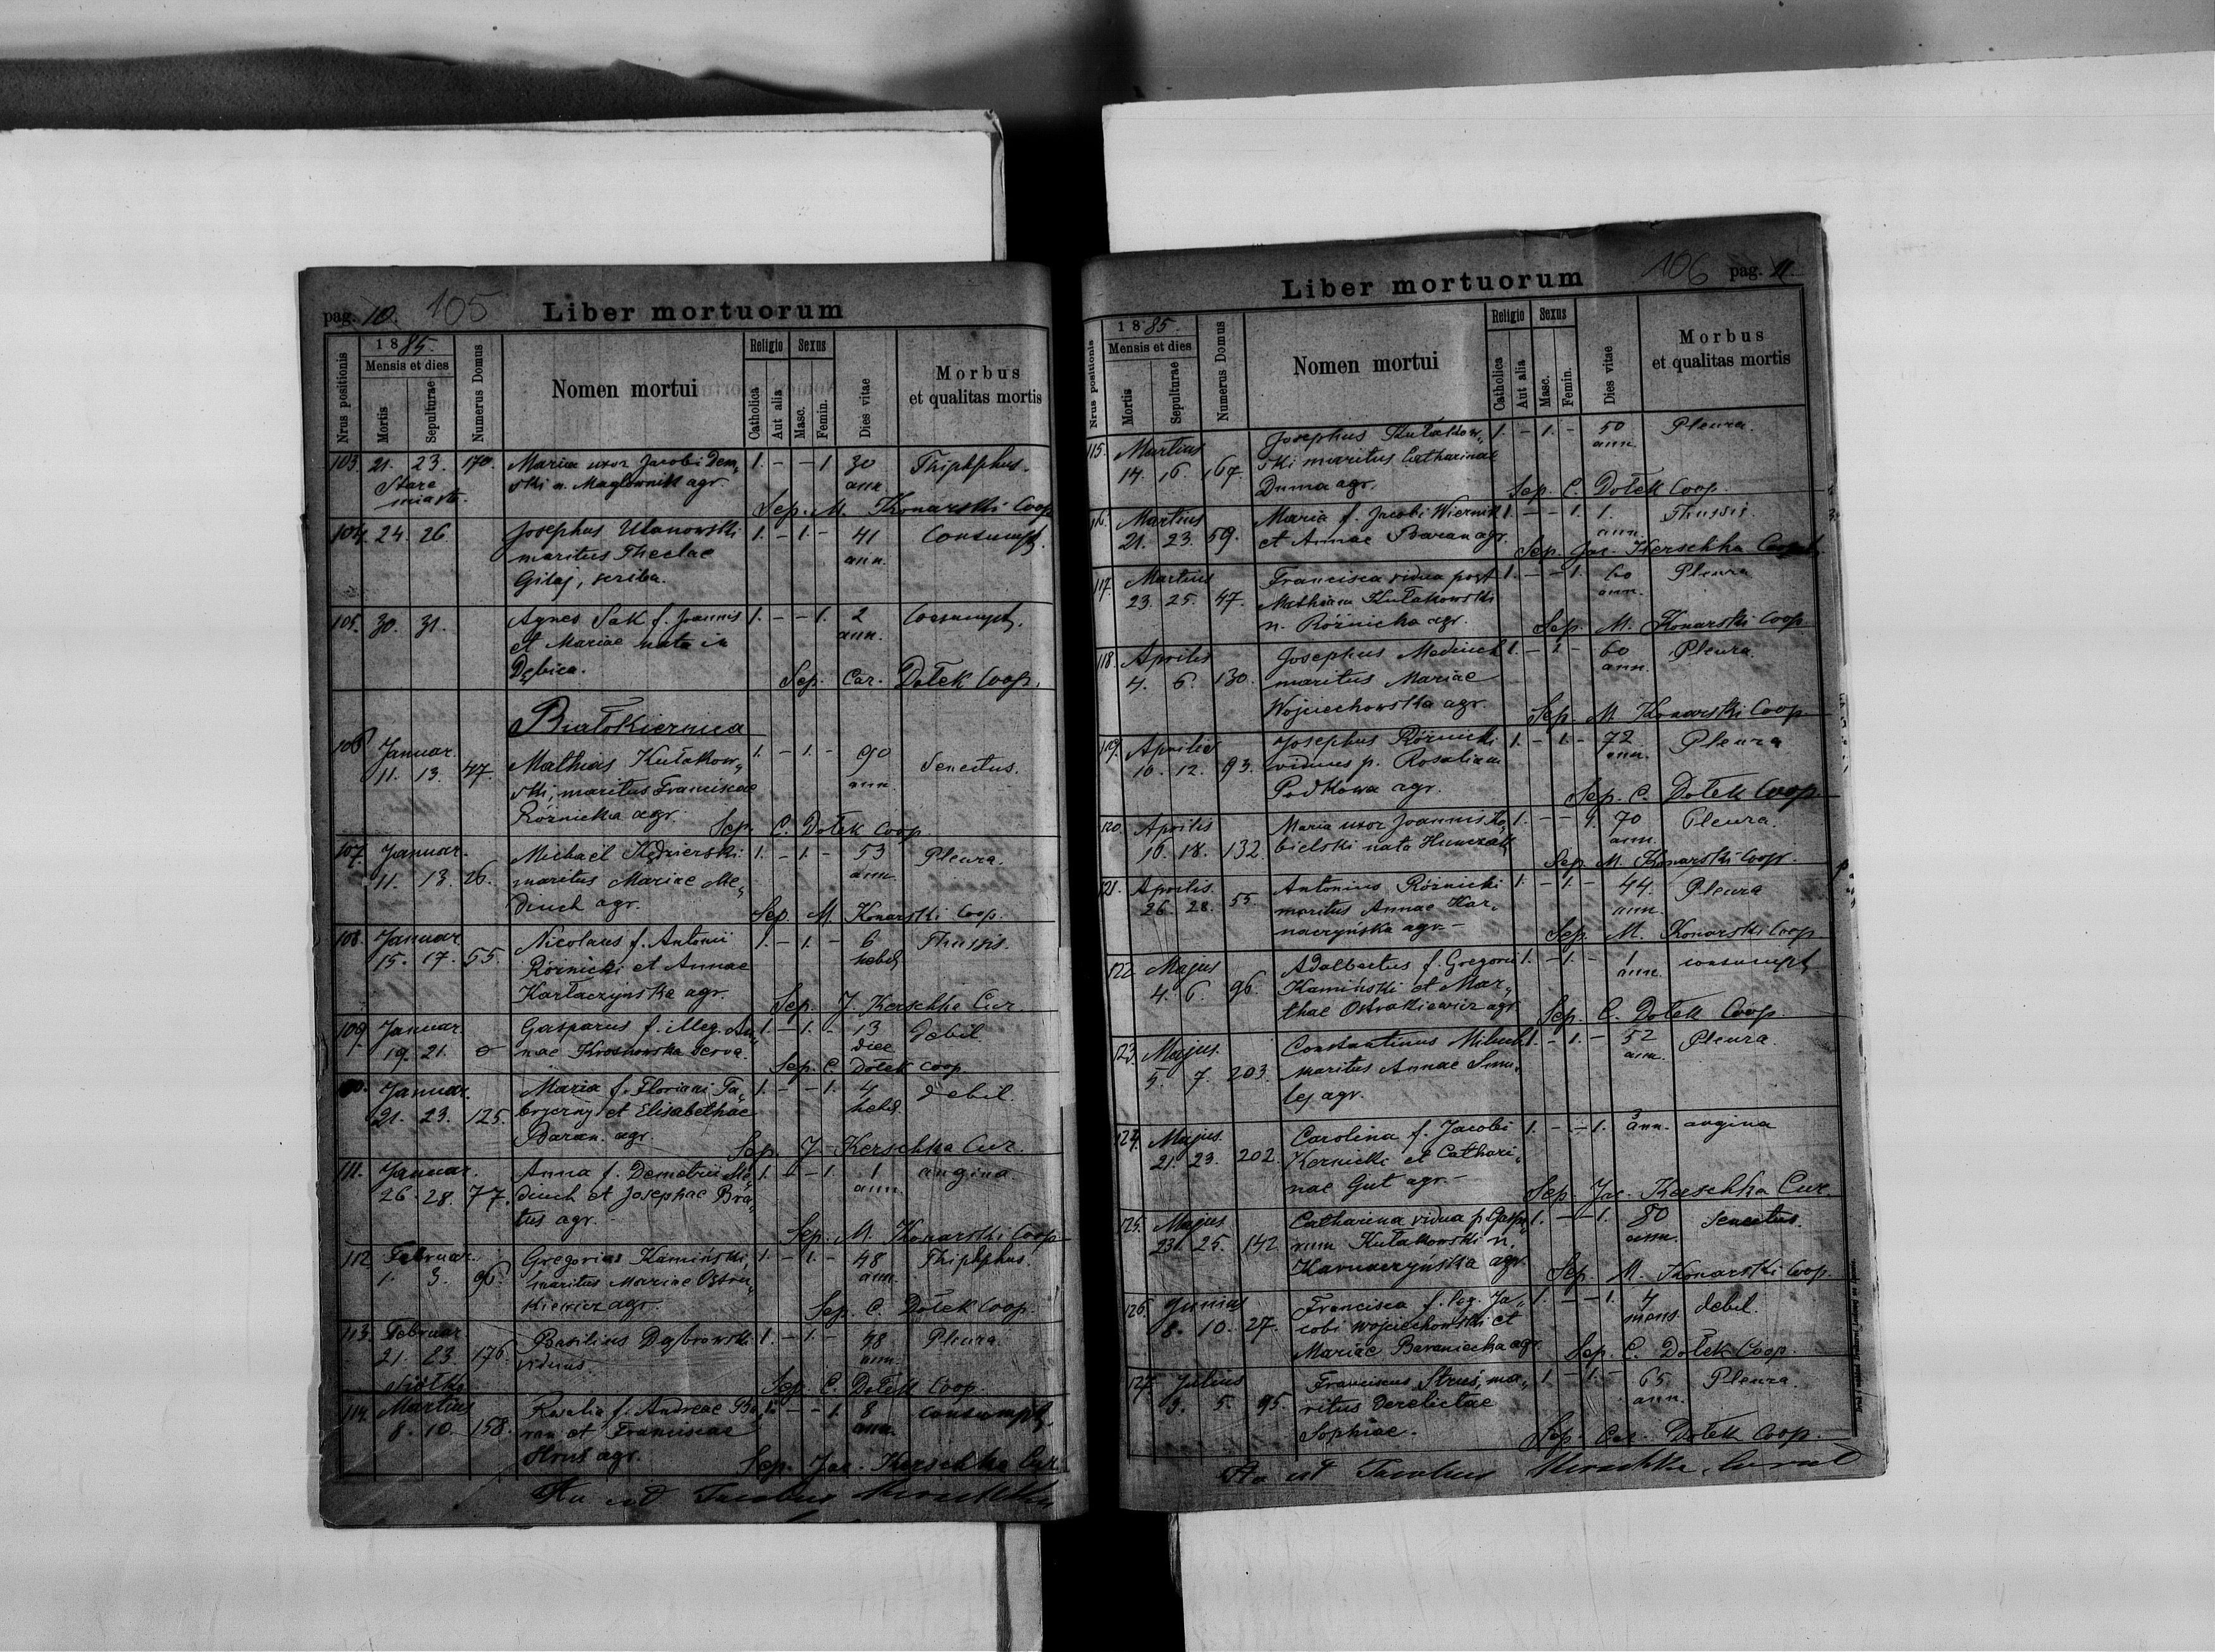 pag. 10. 105 Liber mortuorum
Nrus positionis
1885.
Mensis et dies
Mortis
Sepulturae
Numerus Domus
Nomen mortui
Religio
Catholica
Aut alia
Sexus
Masc.
Femin.
Dies vitae
Morbus
et qualitas mortis
103. 21. 23. 170. Maria uxor Jacobi Dem„ 1. - - 1 30 Thiphphus.
Stare ski n. Maglownik agr. ann.
miasto Sep. M. Konarski Coop
104. 24. 26. Josephus Ulanowski 1. - 1. - 41 Consumpt.
maritus Theclae ann.
Gilaj, scriba.
105. 30. 31. Agnes Sak f. Joannis 1. - - 1. 2 Consumpt.
et Mariae nata in ann.
Dębica. Sep. Car. Dołek Coop.
Białokiernica
106 Januar. Mathias Kułakow„ 1. - 1. - 90 Senectus.
11. 13. 47. ski, maritus Franciscae ann.
Różnicka agr. Sep. C. Dołek Coop.
107. Januar. Michael Kędzierski 1. - 1. - 53 Pleura.
11. 13. 26. maritus Mariae Me„ ann.
diuch agr. Sep. M Konarski Coop.
108. Januar Nicolaus f. Antonii 1. - 1. - 6 Thussis.
15. 17. 55. Różnicki et Annae hebd
Karłaczyńska agr. Sep. J. Kerschka Cur.
109. Januar. Gasparus f. illeg. An„ 1. - 1. - 13 Debil.
19. 21. 0 nae Krosnowska serva. diee
Sep. C Dołek Coop.
Januar. Maria f. Floriani Ta„ 1. - - 1. 4 debil.
21. 23. 125. et Elisabethae hebd.
Baran. agr. Sep. J Kerschka Cur.
111. Januar. Anna f. Demetrii Me„ 1. - - 1. 1 angina.
26. 28. 77. diuch et Josephae Bra„ ann.
tus agr. Sep. M. Konarski Coop
112 Februar. Gregorius Kamiński, 1. - 1. - 48 Thiphphus.
1. 3. 96. maritus Mariae Ostra„ ann.
kiewicz agr. Sep. C. Dołek Coop.
113. Februar. Basilius Dąbrowski 1. - 1. - 48 Pleura.
21. 23. 176. viduus ann.
Sep. C. Dołek Coop.
114. Martius Rosalia f. Andreae Ba„ 1. - - 1. 8 Consumpt.
8. 10. 158. ran et Franciscae ann.
agr. Sep. Jac. Kerschka Cur.
Ita est Jacobus Kerschka
Liber mortuorum 106 pag. 11.
Nrus positionis
1885.
Mensis et dies
Mortis
Sepulturae
Numerus Domus
Nomen mortui
Religio
Catholica
Aut alia
Sexus
Masc.
Femin.
Dies vitae
Morbus
et qualitas mortis
115. Martius Josephus Kułakow„ 1. - 1. - 50 Pleura.
14. 16. 167. ski maritus Catharinae ann.
Duma agr. Sep. C. Dołek Coop.
116. Martius Maria f. Jacobi Wiernik 1. - - 1. 1. Thussis.
21. 23. 59. et Annae Baran agr. ann.
Sep. Jac. Kerschka
117. Martius Francisca vidua post 1. - - 1. 60 Pleura
23. 25. 47. Mathiam Kułakowski ann.
n. Różnicka agr. Sep. M. Konarski Coop.
118. Aprilis Josephus Mediuch 1. - 1. - 60 Pleura.
4. 6. 130. maritus Mariae ann.
Wojciechowska agr. Sep. M Konarski Coop
119. Aprilis Josephus Różnicki 1. - 1. - 72 Pleura
10. 12. 93. viduus p. Rosaliam ann.
Podkowa agr. Sep. C. Dołek Coop
120. Aprilis Maria uxor Joannis Ko„ 1. - - 1. 70 Pleura.
16. 18. 132. bielski nata Huńczak ann.
Sep. M. Konarski Coop.
121. Aprilis. Antonius Różnicki 1. - 1. - 44. Pleura
26. 28. 55 maritus Annae Kar„ ann.
naczyńska agr. - Sep. M. Konarski Coop
122 Majus Adalbertus f. Gregorii 1. - 1. - 1 consumpt
4. 6. 96. Kamiński et Mar„ ann.
thae Ostrakiewicz agr. Sep. C. Dołek Coop.
123. Majus. Constantinus 1. - 1. - 52 Pleura.
5. 7. 203. maritus Annae Smu„ ann.
lej agr.
124. Majus. Carolina f. Jacobi 1. - - 1. 3 angina
21. 23. 202. Kernicki et Cathari„ ann.
nae Gut agr. - Sep. Jac. Kerschka Cur.
125. Majus Catharina vidua p. Gaspa„ 1. - - 1. 80 Senectus.
23. 25. 142 rum Kułakowski n. ann.
Karnaczyńska agr. Sep. M. Konarski Coop.
126. Junius Francisca f. leg. Ja„ 1. - - 1. 4 debil.
8. 10. 27. cobi Wojciechowski et mens.
Mariae Baraniecka agr. Sep. C. Dołek Coop.
127. Julius Franciscus Struś, ma„ 1 - 1. - 65. Pleura.
3. 5. 95. ritus derelictae ann.
Sophiae. Sep. Car. Dołek Coop.
Ita est Jacobus Kerschka, Curat